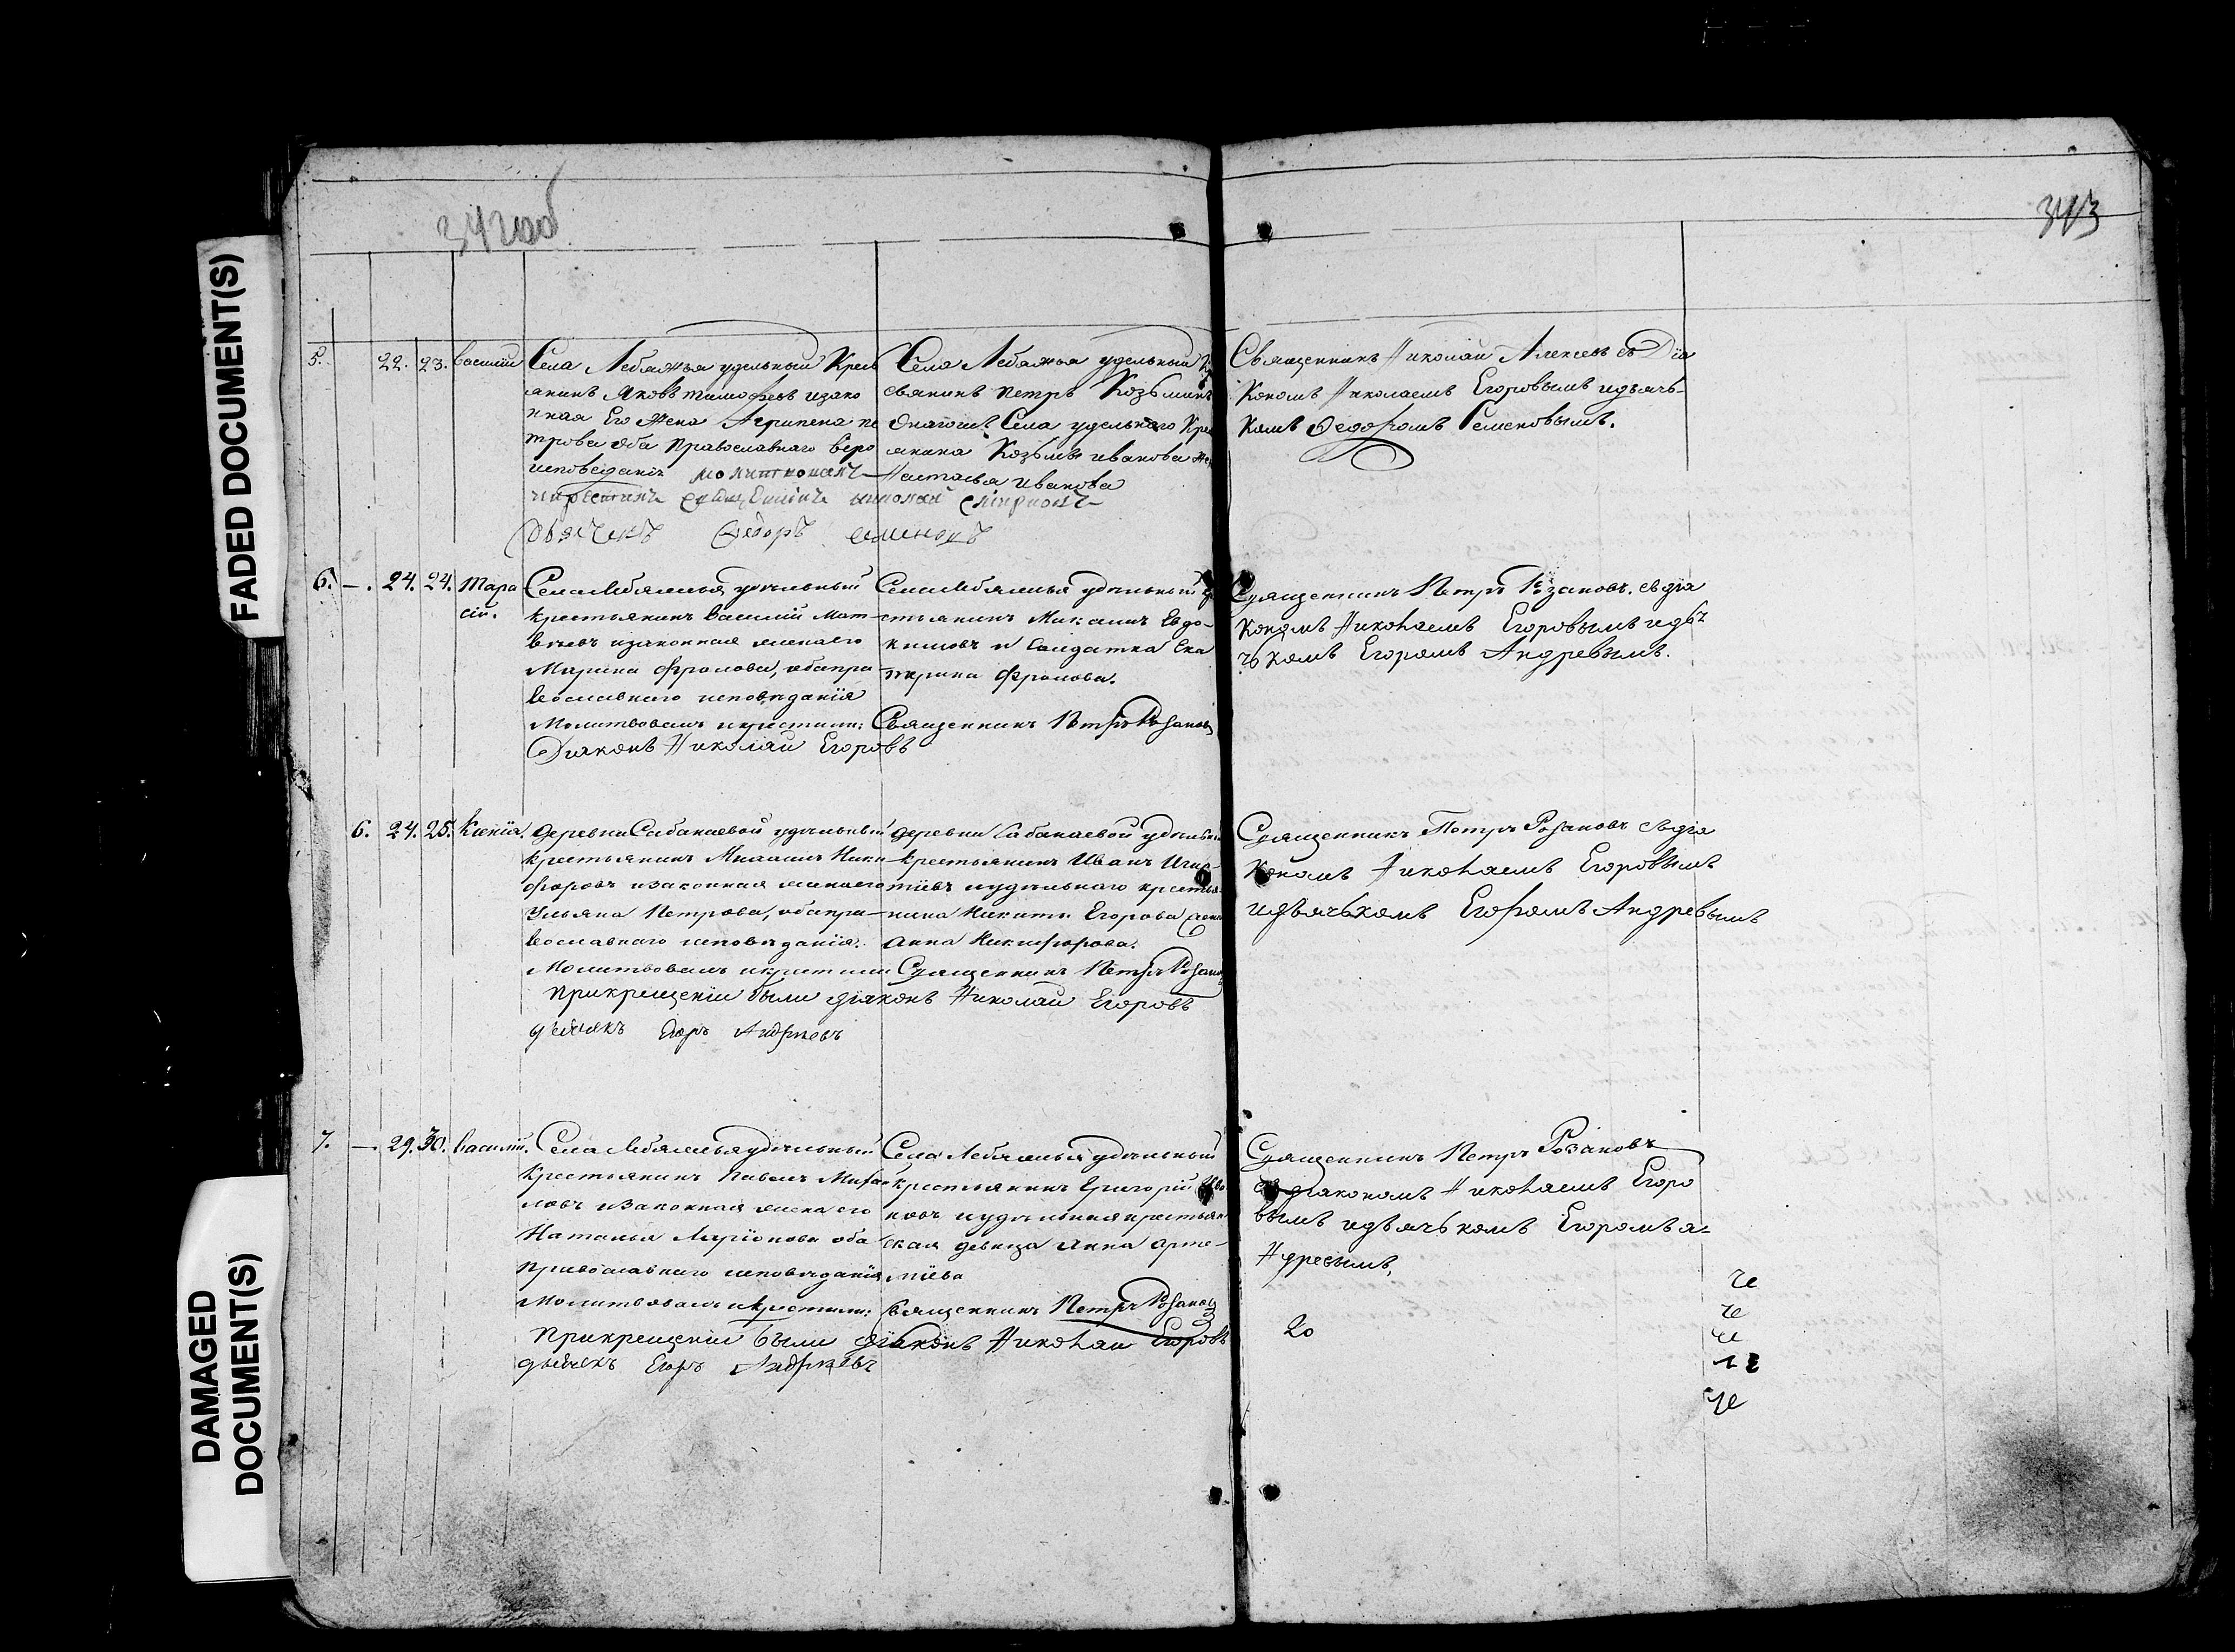 FADED DOCUMENT(S)
DAMAGED DOCUMENT(S)
342 об
343
5. 22. 23. Василий
Села Лебяжья удельный Крест
янинъ Яковъ Тимофеевъ и зако
нная Его Жена Агрипена Пе
трова оба Православнаго веро
исповеданія молитвовалъ
и крестилъ священникъ николай смирновъ
дьячекъ Федоръ семеновъ
Села Лебяжья удельный Кр
естьянинъ Петръ Козьминъ
Онагожъ Села удельнаго Крес
янина Козьмы Иванова же
Настасья Иванова
Священникъ Николай Алексевъ съ Діа
Кономъ Николаемъ Егоровымъ и дьячь
Комъ Федоромъ Семеновымъ.
6. —. 24. 24. Тара
сій.
Села Лебяжья удѣльный
крестьянинъ Василій Мат
вѣевъ и законная жена его
Марина Фролова, оба пра
вославнаго исповѣданія
Молитвовалъ и крестилъ: Священникъ Петръ Розановъ
Диаконъ Николай Егоровъ
Села Лебяжья удѣльный кре
стьянинъ Михаилъ Евдо
кимовъ и Солдатка Ека
терина Фролова.
Священникъ Петръ Розановъ. съ діа
кономъ Николаемъ Егоровымъ и дья
чькомъ Егоромъ Андревымъ.
6. 24. 25. Ксенія.
деревни Сабакаевой удѣльный
крестьянинъ Михаилъ Ники
форовъ и законная жена его
Ульяна Петрова, оба пра
вославнаго исповѣданія.
Молитвовалъ и крестилъ Священникъ Петръ Розановъ
При крещеніи были діяконъ Николай Егоровъ
дьячекъ Егоръ Андреевъ
деревни Сабакаевой удѣльный
крестьянинъ Иванъ Игна
тьевъ и удѣльнаго крестья
нина Никиты Егорова жена
Анна Никифорова.
Священникъ Петръ Розановъ съ діа
кономъ Николаемъ Егоровымъ
и дьячькомъ Егоромъ Андревымъ
7. —. 29. 30. Василій.
Села Лебяжья удѣльный
Крестьянинъ Павелъ Михай
ловъ и законная жена его
Наталья Ларіонова оба
православнаго исповѣданія
Молитвовалъ и крестилъ: Священникъ Петръ Розановъ
При крещеніи были діаконъ Николай Егоровъ
дьячекъ Егоръ Андреевъ
Села Лебяжья удѣльный
крестьянинъ Григорій Ива
новъ и удѣльная крестьян
ская девица Анна Арте
мьева
Священникъ Петръ Розановъ
съ діакономъ Николаемъ Егоро
вымъ и дьячькомъ Егоромъ А=
Ндревымъ,
20